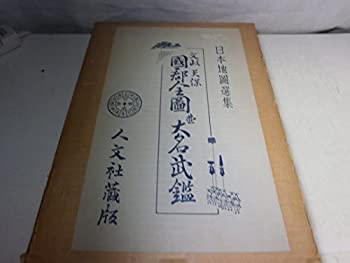 日本地圖選集
文政天保
國郡全圖並大名武鑑
人文社蔵版